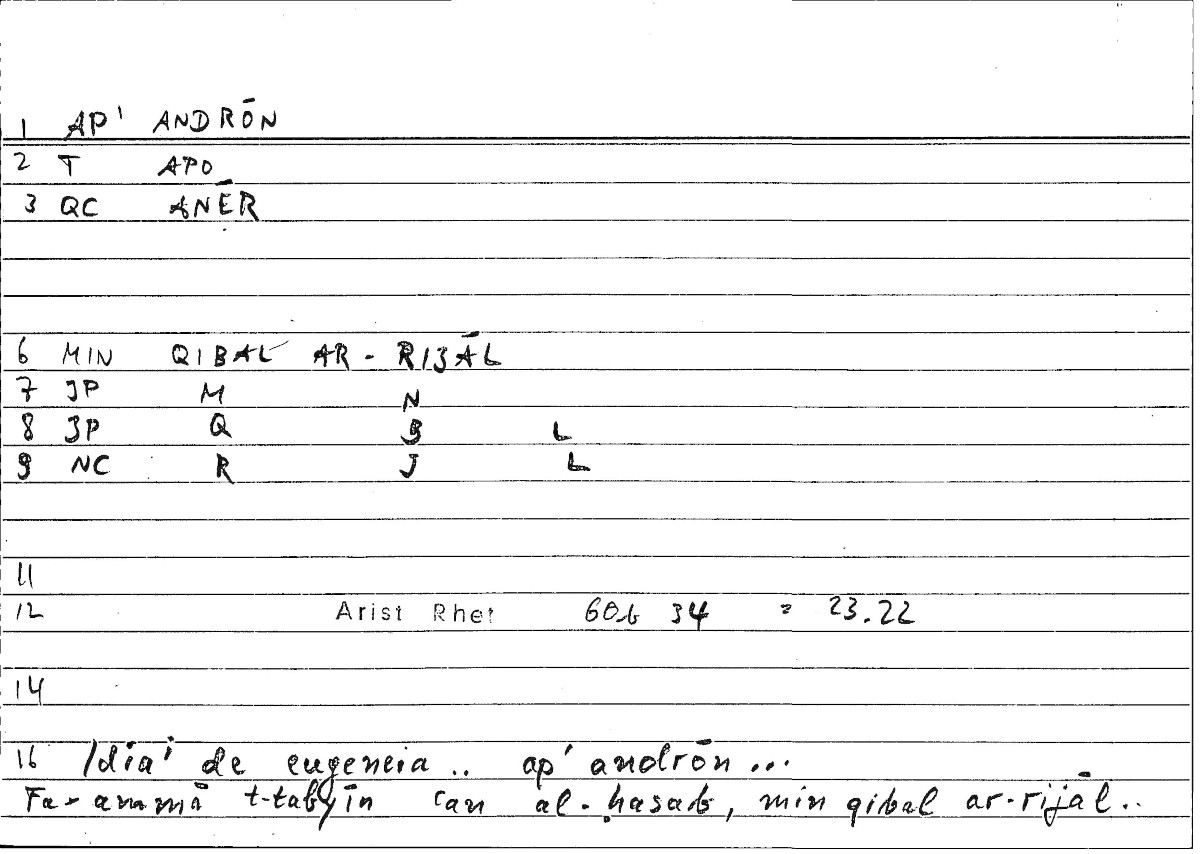 1 AP' ANDRŌN
2 T APO
3 QC ANĒR
6 MIN QIBAL AR-RIJĀL
7 JP M N
8 JP Q B L
9 NC R J L
11
12 Arist Rhet 60b 34 = 23.22
14
16 Idiāi de eugeneia .. ap' andrōn ...
Fa-ammā t-tabyīn ʿan al-ḥasab, min qibal ar-rijāl..